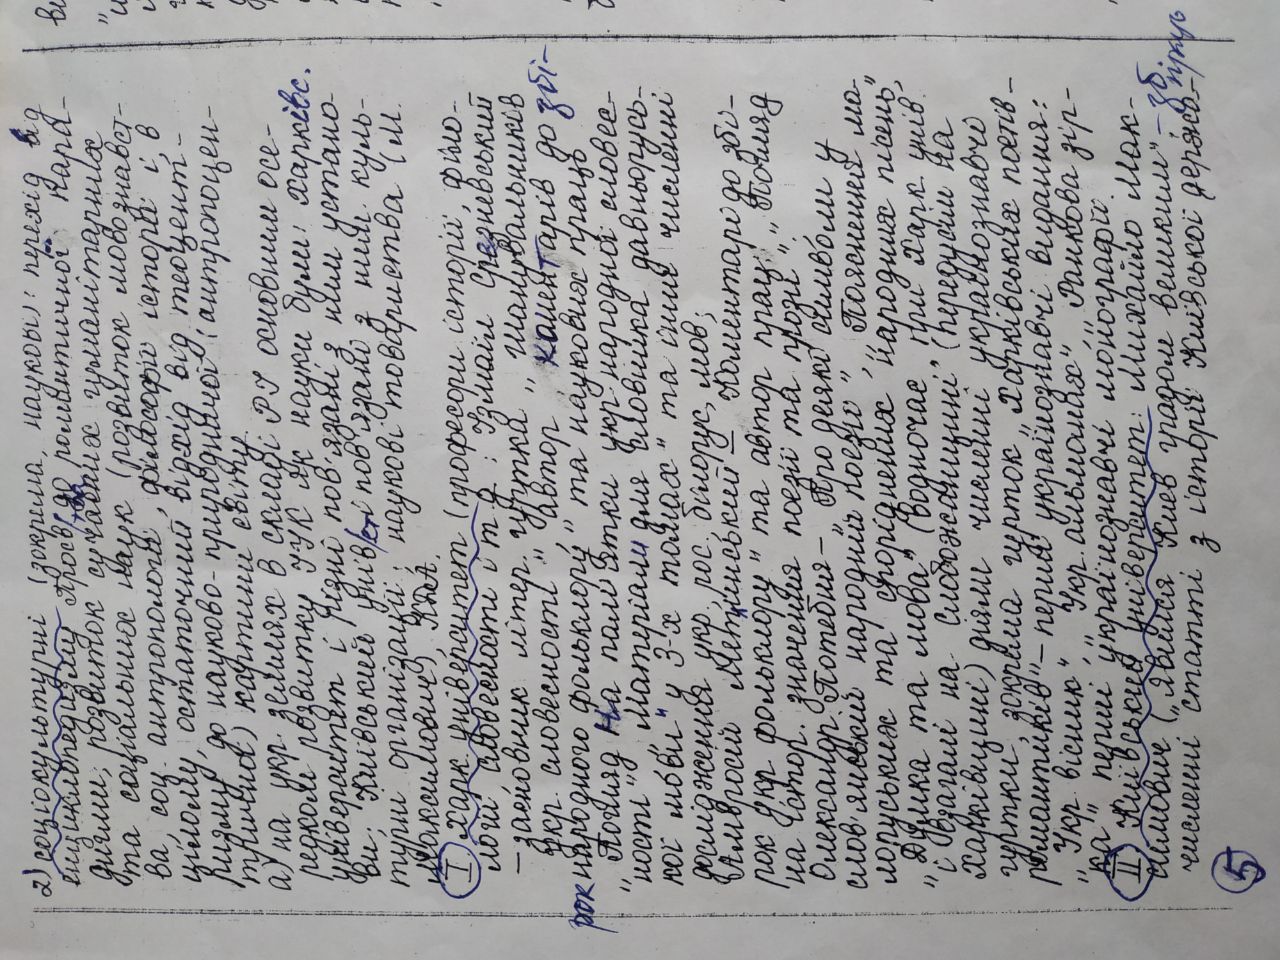 2) соціокультурні (зокрема, наукові): перехід від
енциклопедизму Просв/тва до романтичної пара-
дигми; розвиток сучасних гуманітарних
та соціальних наук (розвиток мовознавст-
ва, соц. антропології, філософії історії і, в
цілому, остаточний відхід від теоцент-
ризму до науково-природничої (антропоцен-
тричної) картини світу.
а) на укр. землях в складі РІ основним осе-
редком розвитку ІУК як науки були: Харківс.
університет і різні пов'язані з ним устано-
ви; Київський унів/ет і пов'язані з ним куль-
турні організації; наукові товариства (М.
Максимович), КДА.
І Харк. університет (професори історії, філо-
логії, словесності і т.д.: Ізмаїл Срезневський
– засновник літер. гуртка „Шанувальників
укр. словесності", автор „Коментарів до збі-
рок народного фольклору" та наукових праць
„Погляд на пам'ятки укр. народної словес-
ності", „Матеріали для словника давньорусь-
кої мови" у 3-х томах" та інші численні
дослідження укр., рос., білорус. мов;
Амвросій Метлинський – Коментарі до збі-
рок укр. фольклору" та автор прац: „Погляд
на істор. значення поезії та прози";
Олександр Потебня – „Про деякі символи у
слов'янській народній поезії", „Пояснення ма-
лоруських та споріднених народних пісень",
„Думка та мова" (водночас при Харк. унів.
і взагалі на Слобожанщині (передусім на
Харківщині) діяли численні українознавчі
гуртки, зокрема гурток „Харківських поетів-
романтиків" – перші українознавчі видання:
„Укр. вісник", „Укр. альманах", „Ранкова зір-
ка", перші українознавчі монографії.
ІІ Київський університет: Михайло Мак-
симович („Явился Киев градом великим", – збірку
численні статті з історії Київської держа-
5